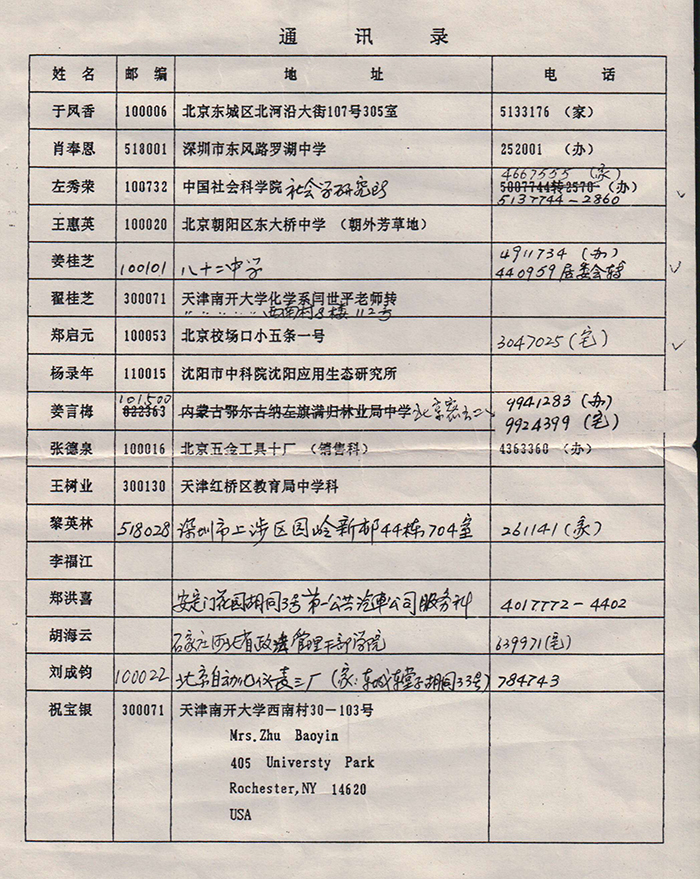 通 讯 录
姓 名 邮 编 地 址 电 话
于凤香 100006 北京东城区北河沿大街107号305室 5133176 (家)
肖奉恩 518001 深圳市东风路罗湖中学 252001 (办)
4667555 (家)
左秀荣 100732 中国社会科学院 社会学研究所 5007744转2570 (办)
5137744-2860
王惠英 100020 北京朝阳区东大桥中学 (朝外芳草地)
4911734 (办)
姜桂芝 100101 八十二中学 440959居委会转
翟桂芝 300071 天津南开大学化学系闫世平老师转
〃 〃 〃 〃 〃 西南村8楼112号
郑启元 100053 北京校场口小五条一号 3047025 (宅)
杨录年 110015 沈阳市中科院沈阳应用生态研究所
101500 9941283 (办)
姜言梅 022363 内蒙古鄂尔古纳左旗满归林业局中学 北京密云二 9924399 (宅)
张德泉 100016 北京五金工具十厂 (销售科) 4363360 (办)
王树业 300130 天津红桥区教育局中学科
黎英林 518028 深圳市上步区园岭新邨44栋704室 261141 (家)
李福江
郑洪喜 安定门花园胡同3号第一公共汽車公司服务科 4017772-4402
胡海云 石家庄河北省政法管理干部学院 639971(宅)
刘成钧 100022 北京自动化仪表三厂 (家:东城东堂子胡同33号) 784743
祝宝银 300071 天津南开大学西南村30-103号
Mrs.Zhu Baoyin
405 Universty Park
Rochester,NY 14620
USA